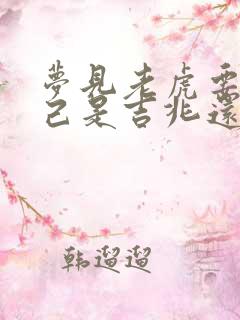 夢見老虎要
己是吉兆還
韩遛遛